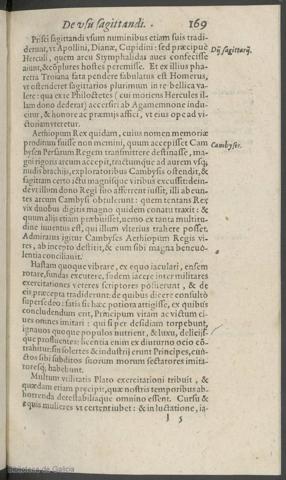 De vsu sagittandi. 169
Prisci sagittandi vsum numinibus etiam suis tradi-
derunt, vt Apollini, Dianæ, Cupidini: sed præcipuè
Dij sagittarij.
Herculi, quem arcu Stymphalidas aues confecisse
aiunt, & complures hostes peremisse. Et ex illius pha-
retra Troiana fata pendere fabulatus est Homerus,
vt ostenderet sagittarios plurimum in re bellica va-
lere: qua ex re Philoctetes (cui moriens Hercules il-
lam dono dederat) accersiri ab Agamemnone indu-
citur, & honore ac præmijs affici, vt eius ope ad vi-
ctoriam vteretur.
Aethiopum Rex quidam, cuius nomen memoriæ
proditum fuisse non memini, quum accepisset Cam
Cambyses.
bysen Persarum Regem transmittere destinasse, ma-
gni rigoris arcum accepit, tractumque ad aurem vsq;
nudis brachijs, exploratoribus Cambysis ostendit, &
sagittam certo ictu magnisque viribus excussit: dein-
de vt illum dono Regi suo afferrent iussit. illi abeun-
tes arcum Cambysi obtulerunt: quem tentans Rex
vix duobus digitis magno quidem conatu traxit: &
quum alijs etiam præbuisset, nemo ex tanta multitu-
dine inuentus est, qui illum vlterius trahere posset.
Admiratus igitur Cambyses Aethiopum Regis vi-
res, ab incepto destitit, & eum sibi magna beneuo-
lentia conciliauit.
Hastam quoque vibrare, ex equo iaculari, ensem
rotare, fundas excutere, sudem iacere inter militares
exercitationes veteres scriptores posuerunt, & de
eis præcepta tradiderunt: de quibus dicere consultò
supersedeo: satis sit hæc potiora attigisse, ex quibus
concludendum erit, Principum vitam ac victum ci-
ues omnes imitari: qui si per desidiam torpebunt,
ignauos quoque populos nutrient, & luxu, delicijs-
que profluentes: licentia enim ex diururno ocio cō-
trahitur: sin solertes & industrij erunt Principes, cun-
ctos sibi subditos suorum morum sectatores imita-
toresq; habebunt.
Multum vtilitatis Plato exercitationi tribuit, &
quædam etiam præcipit, quæ nostris temporibus ab-
horrenda detestabiliaque omnino essent. Cursu &
equis mulieres vt certent iubet: & in luctatione, ia-
l 5
Biblioteca de Galicia